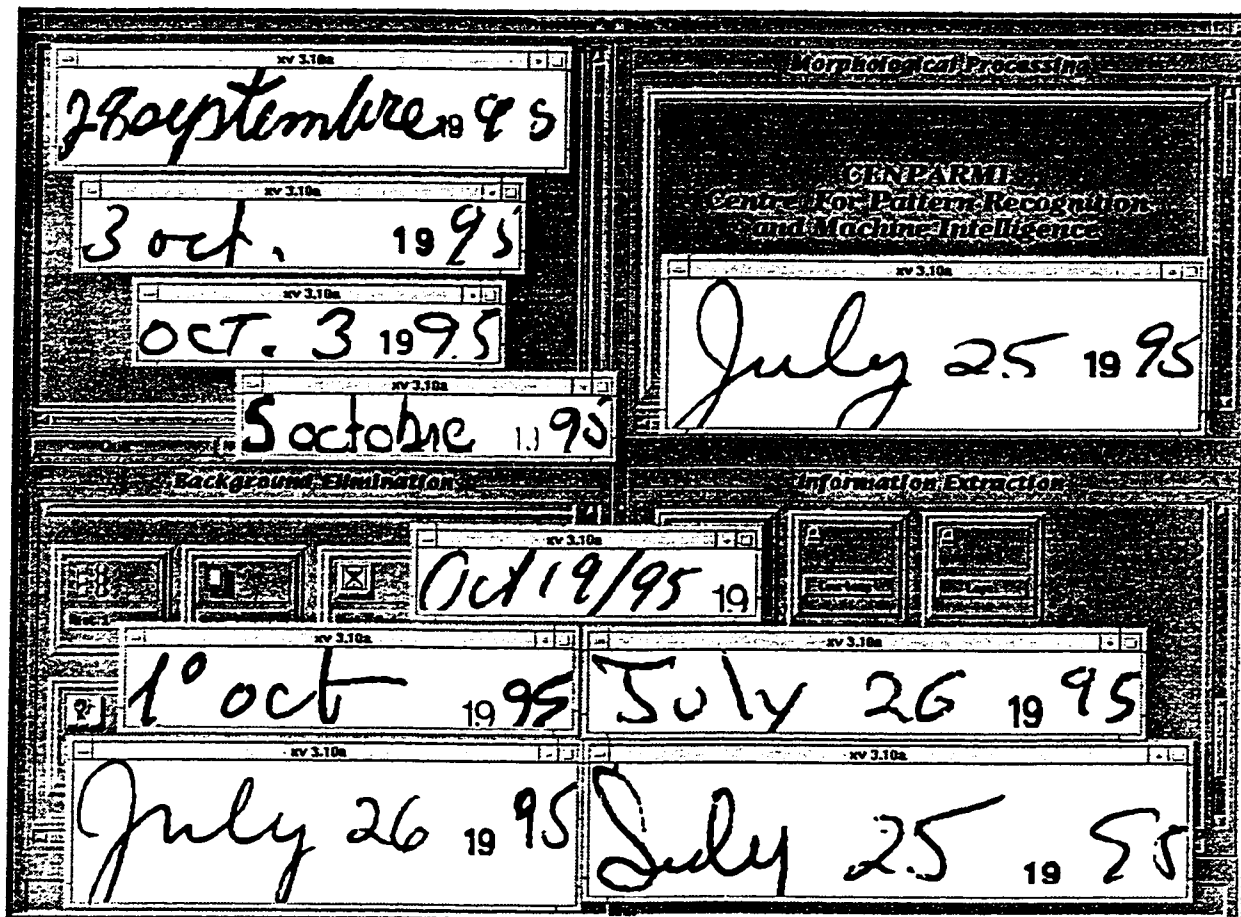 xv 3.10a
28 septembre 19 95
xv 3.10a
3 oct. 19 95
xv 3.10a
OCT. 3 19 95
xv 3.10a
5 octobre 19 95
Morphological Processing
CENPARMI
Centre For Pattern Recognition
and Machine Intelligence
xv 3.10a
July 25 19 95
Background Elimination
Information Extraction
xv 3.10a
Oct 19/95 19
xv 3.10a
1° oct 19 95
xv 3.10a
July 26 19 95
xv 3.10a
July 26 19 95
xv 3.10a
July 25 19 95